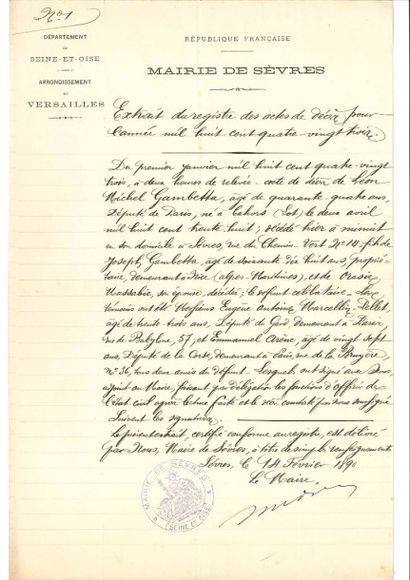 No 1
DÉPARTEMENT
de
SEINE-ET-OISE
ARRONDISSEMENT
de
VERSAILLES
RÉPUBLIQUE FRANÇAISE
MAIRIE DE SÈVRES
Extrait du registre des actes de décès pour
l'année mil huit cent quatre-vingt trois.
Du premier janvier mil huit cent quatre-vingt
trois, à deux heures de relevée. Acte de décès de Léon
Michel Gambetta, âgé de quarante quatre ans,
Député de Paris, né à Cahors (Lot) le deux avril
mil huit cent trente huit; décédé hier à minuit
en son domicile à Sèvres, rue du Chemin-Vert No 14, fils de
Joseph Gambetta, âgé de soixante dix huit ans, proprié-
taire, demeurant à Nice (Alpes-Maritimes), et de Orasie
Massabie, son épouse, décédée; le défunt célibataire. Les
témoins ont été Messieurs Eugène Antoine Marcellin Pellet,
âgé de trente-trois ans, Député du Gard, demeurant à Paris
rue de Babylone, 57, et Emmanuel Arène, âgé de vingt sept
ans, Député de la Corse, demeurant à Paris, rue de la Bruyère
No 36, tous deux amis du défunt. Lesquels ont signé avec nous
adjoint au Maire, faisant par délégation les fonctions d'officier de
l'état civil après lecture faite et le décès constaté par nous soussigné
Suivent les signatures.
Le présent extrait, certifié conforme au registre, est délivré
par Nous, Maire de Sèvres, à titre de simple renseignement.
Sèvres, le 14 Février 1890
Le Maire.
MAIRIE DE SÈVRES
(SEINE ET OISE)